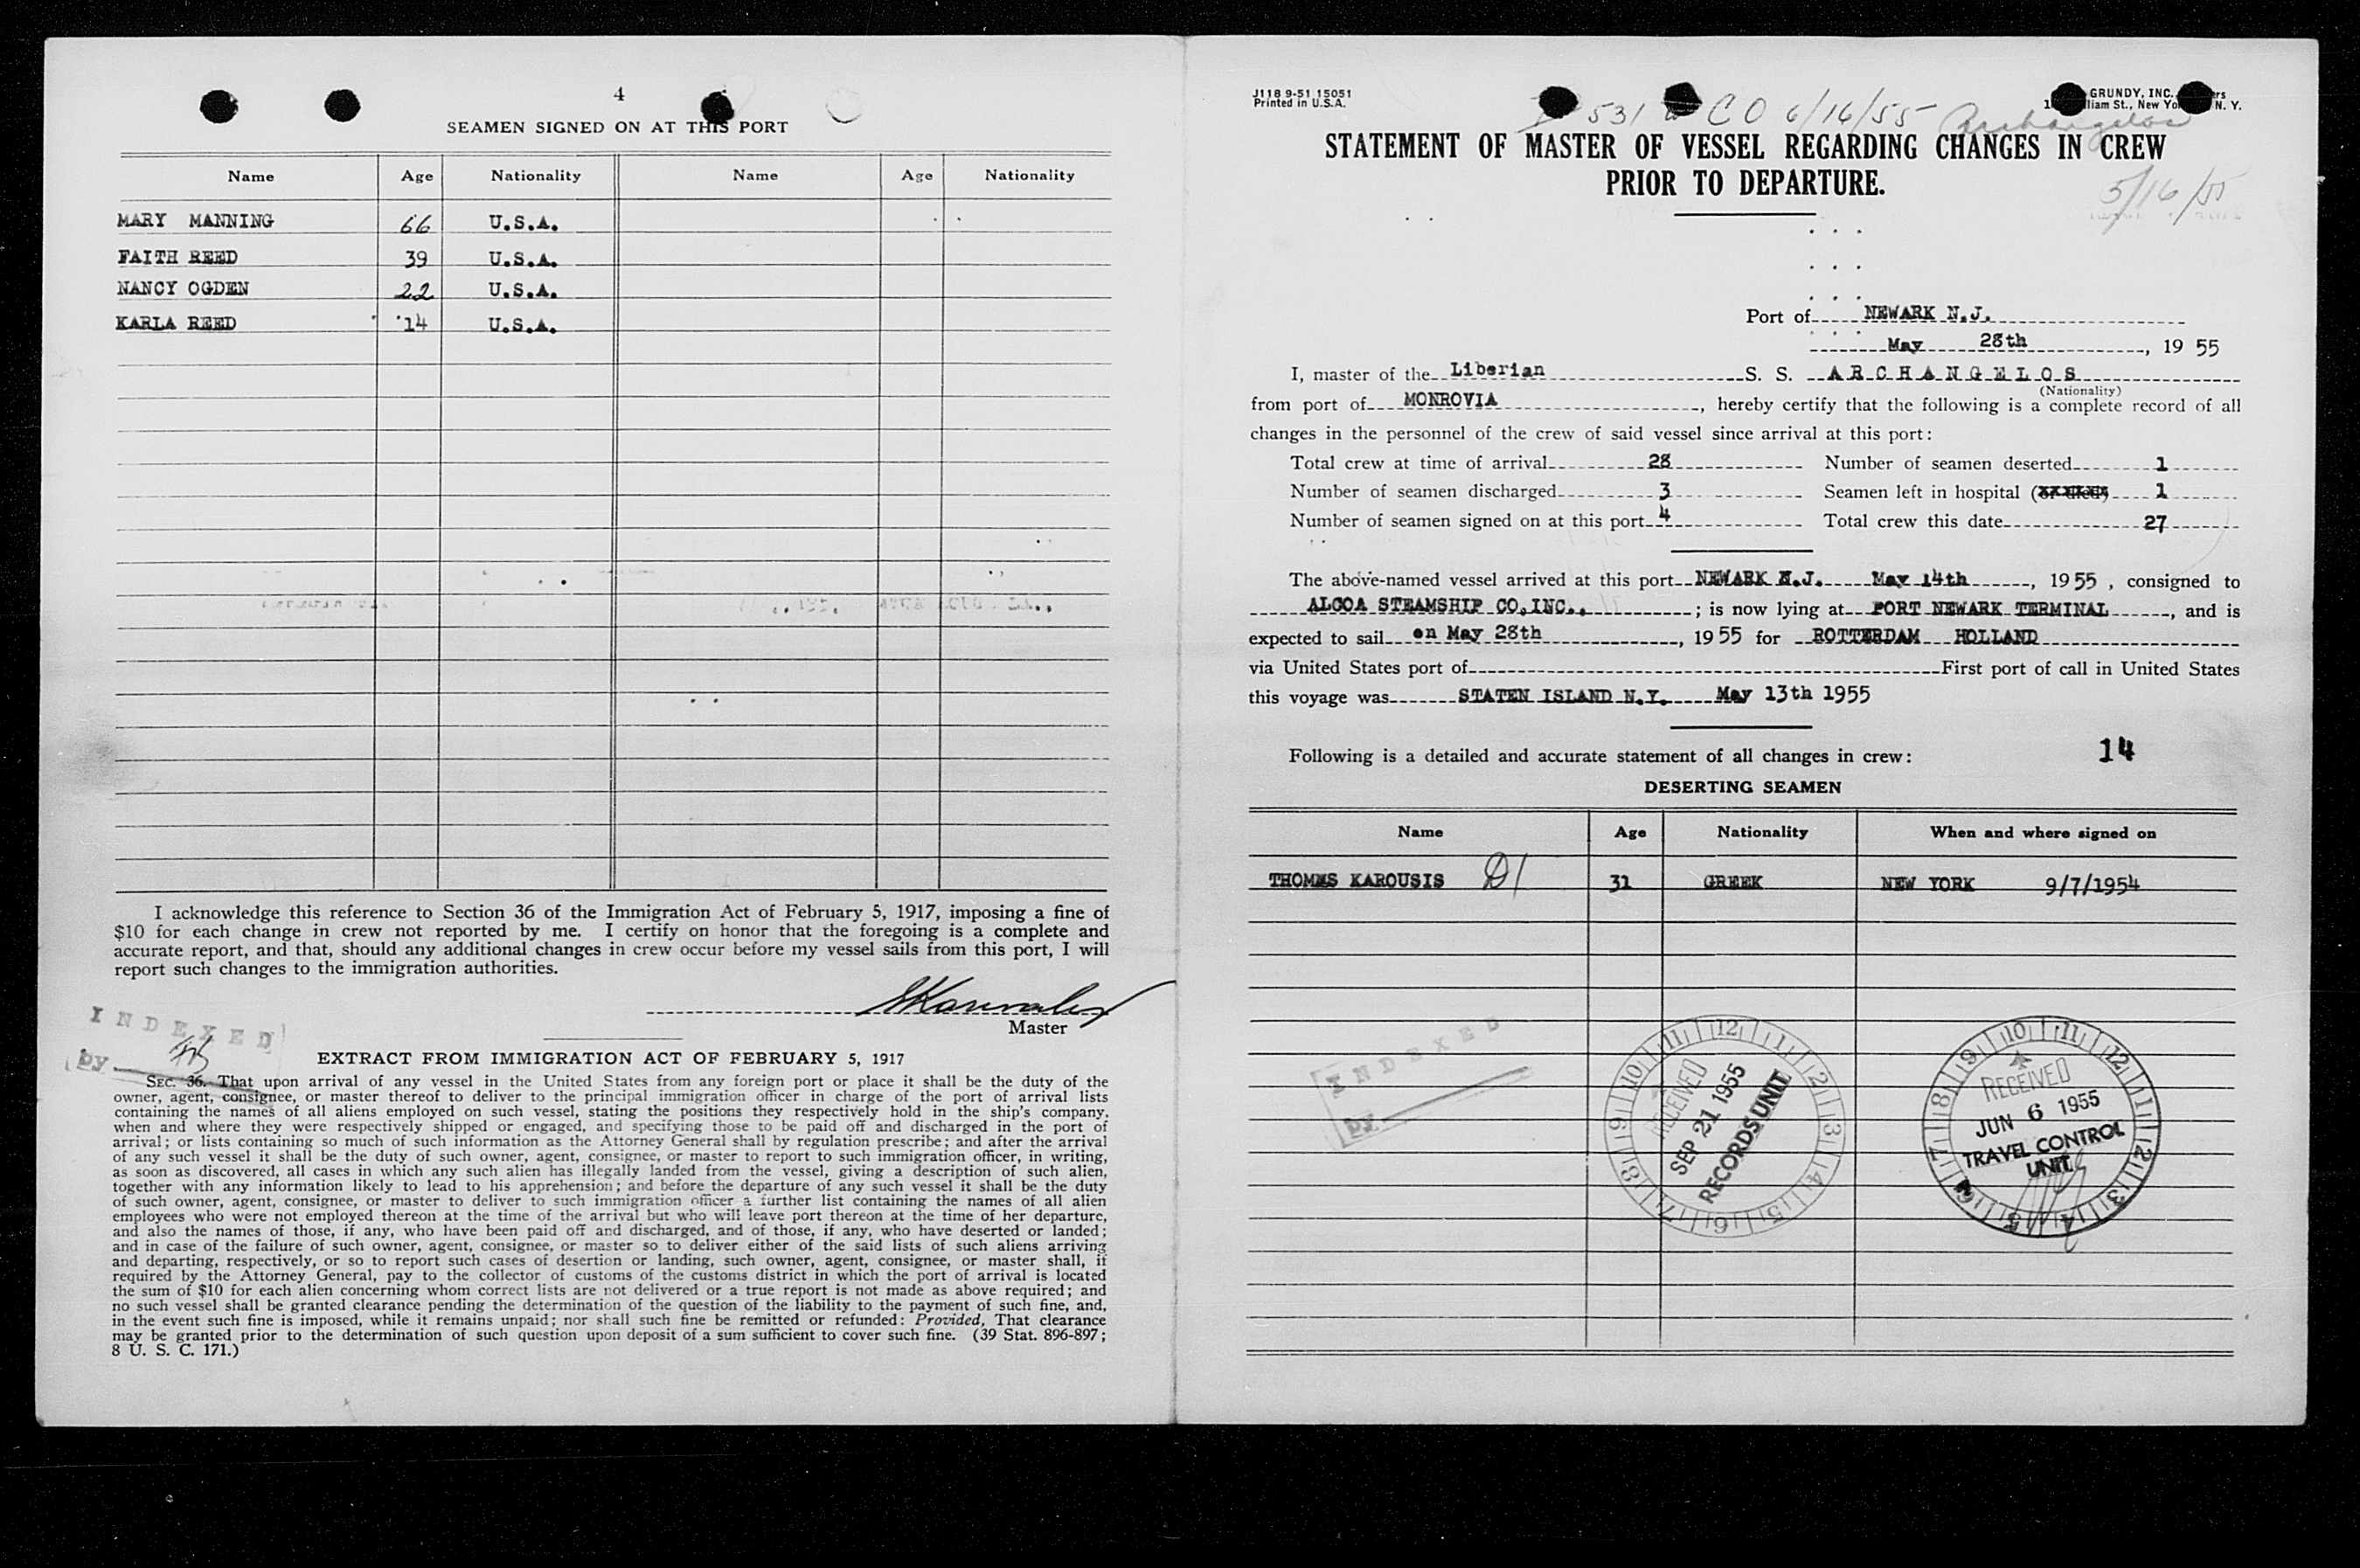 4
SEAMEN SIGNED ON AT THIS PORT
Name Age Nationality Name Age Nationality
MARY MANNING 66 U.S.A.
FAITH REED 39 U.S.A.
NANCY OGDEN 22 U.S.A.
KARLA REED 14 U.S.A.
I acknowledge this reference to Section 36 of the Immigration Act of February 5, 1917, imposing a fine of
$10 for each change in crew not reported by me. I certify on honor that the foregoing is a complete and
accurate report, and that, should any additional changes in crew occur before my vessel sails from this port, I will
report such changes to the immigration authorities.
Master
INDEXED
by
EXTRACT FROM IMMIGRATION ACT OF FEBRUARY 5, 1917
SEC. 36. That upon arrival of any vessel in the United States from any foreign port or place it shall be the duty of the
owner, agent, consignee, or master thereof to deliver to the principal immigration officer in charge of the port of arrival lists
containing the names of all aliens employed on such vessel, stating the positions they respectively hold in the ship's company,
when and where they were respectively shipped or engaged, and specifying those to be paid off and discharged in the port of
arrival; or lists containing so much of such information as the Attorney General shall by regulation prescribe; and after the arrival
of any such vessel it shall be the duty of such owner, agent, consignee, or master to report to such immigration officer, in writing,
as soon as discovered, all cases in which any such alien has illegally landed from the vessel, giving a description of such alien,
together with any information likely to lead to his apprehension; and before the departure of any such vessel it shall be the duty
of such owner, agent, consignee, or master to deliver to such immigration officer a further list containing the names of all alien
employees who were not employed thereon at the time of the arrival but who will leave port thereon at the time of her departure,
and also the names of those, if any, who have been paid off and discharged, and of those, if any, who have deserted or landed;
and in case of the failure of such owner, agent, consignee, or master so to deliver either of the said lists of such aliens arriving
and departing, respectively, or so to report such cases of desertion or landing, such owner, agent, consignee, or master shall, if
required by the Attorney General, pay to the collector of customs of the customs district in which the port of arrival is located
the sum of $10 for each alien concerning whom correct lists are not delivered or a true report is not made as above required; and
no such vessel shall be granted clearance pending the determination of the question of the liability to the payment of such fine, and,
in the event such fine is imposed, while it remains unpaid; nor shall such fine be remitted or refunded: Provided, That clearance
may be granted prior to the determination of such question upon deposit of a sum sufficient to cover such fine. (39 Stat. 896-897;
8 U. S. C. 171.)
J118 9-51 15051
Printed in U.S.A.
GRUNDY, INC.
St., New N. Y.
531 CO 6/16/55 Archangelos
STATEMENT OF MASTER OF VESSEL REGARDING CHANGES IN CREW
PRIOR TO DEPARTURE.
5/16/55
Port of NEWARK N.J.
May 28th, 19 55
I, master of the Liberian S. S. ARCHANGELOS
(Nationality)
from port of MONROVIA, hereby certify that the following is a complete record of all
changes in the personnel of the crew of said vessel since arrival at this port:
Total crew at time of arrival 28 Number of seamen deserted 1
Number of seamen discharged 3 Seamen left in hospital ( 1
Number of seamen signed on at this port 4 Total crew this date 27
The above-named vessel arrived at this port NEWARK N.J. May 14th, 1955, consigned to
ALCOA STEAMSHIP CO,INC.,; is now lying at PORT NEWARK TERMINAL, and is
expected to sail on May 28th, 1955 for ROTTERDAM HOLLAND
via United States port of First port of call in United States
this voyage was STATEN ISLAND N.Y. May 13th 1955
Following is a detailed and accurate statement of all changes in crew: 14
DESERTING SEAMEN
Name Age Nationality When and where signed on
THOMAS KAROUSIS D1 31 GREEK NEW YORK 9/7/1954
INDEXED
by
RECEIVED
SEP 21 1955
RECORDS UNIT
12 1 2 3 4 5 6 7 8 9 10 11
RECEIVED
JUN 6 1955
TRAVEL CONTROL
UNIT
10 11 12 1 2 3 4 5 6 7 8 9